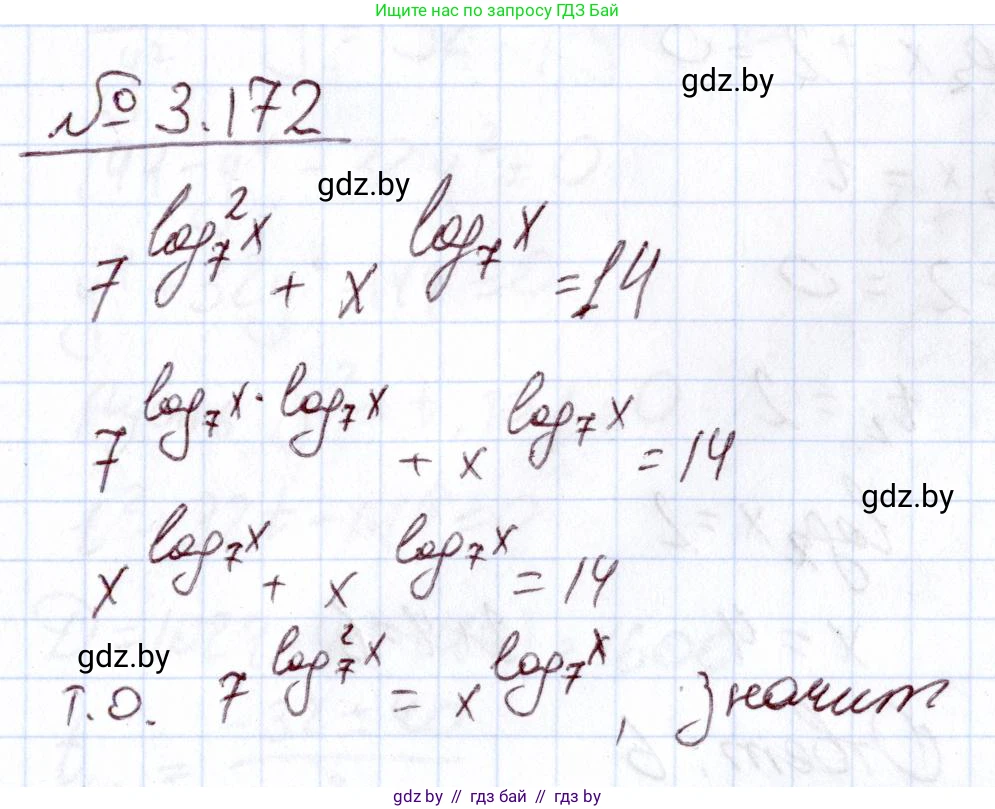 Ищите нас по запросу ГДЗ Бай
gdz.by
№ 3.172
gdz.by
7^(log₇²x) + x^(log₇x) = 14
7^(log₇x · log₇x) + x^(log₇x) = 14
gdz.by
x^(log₇x) + x^(log₇x) = 14
gdz.by
Т.О. 7^(log₇²x) = x^(log₇x), значит
gdz.by // гдз бай // gdz.by